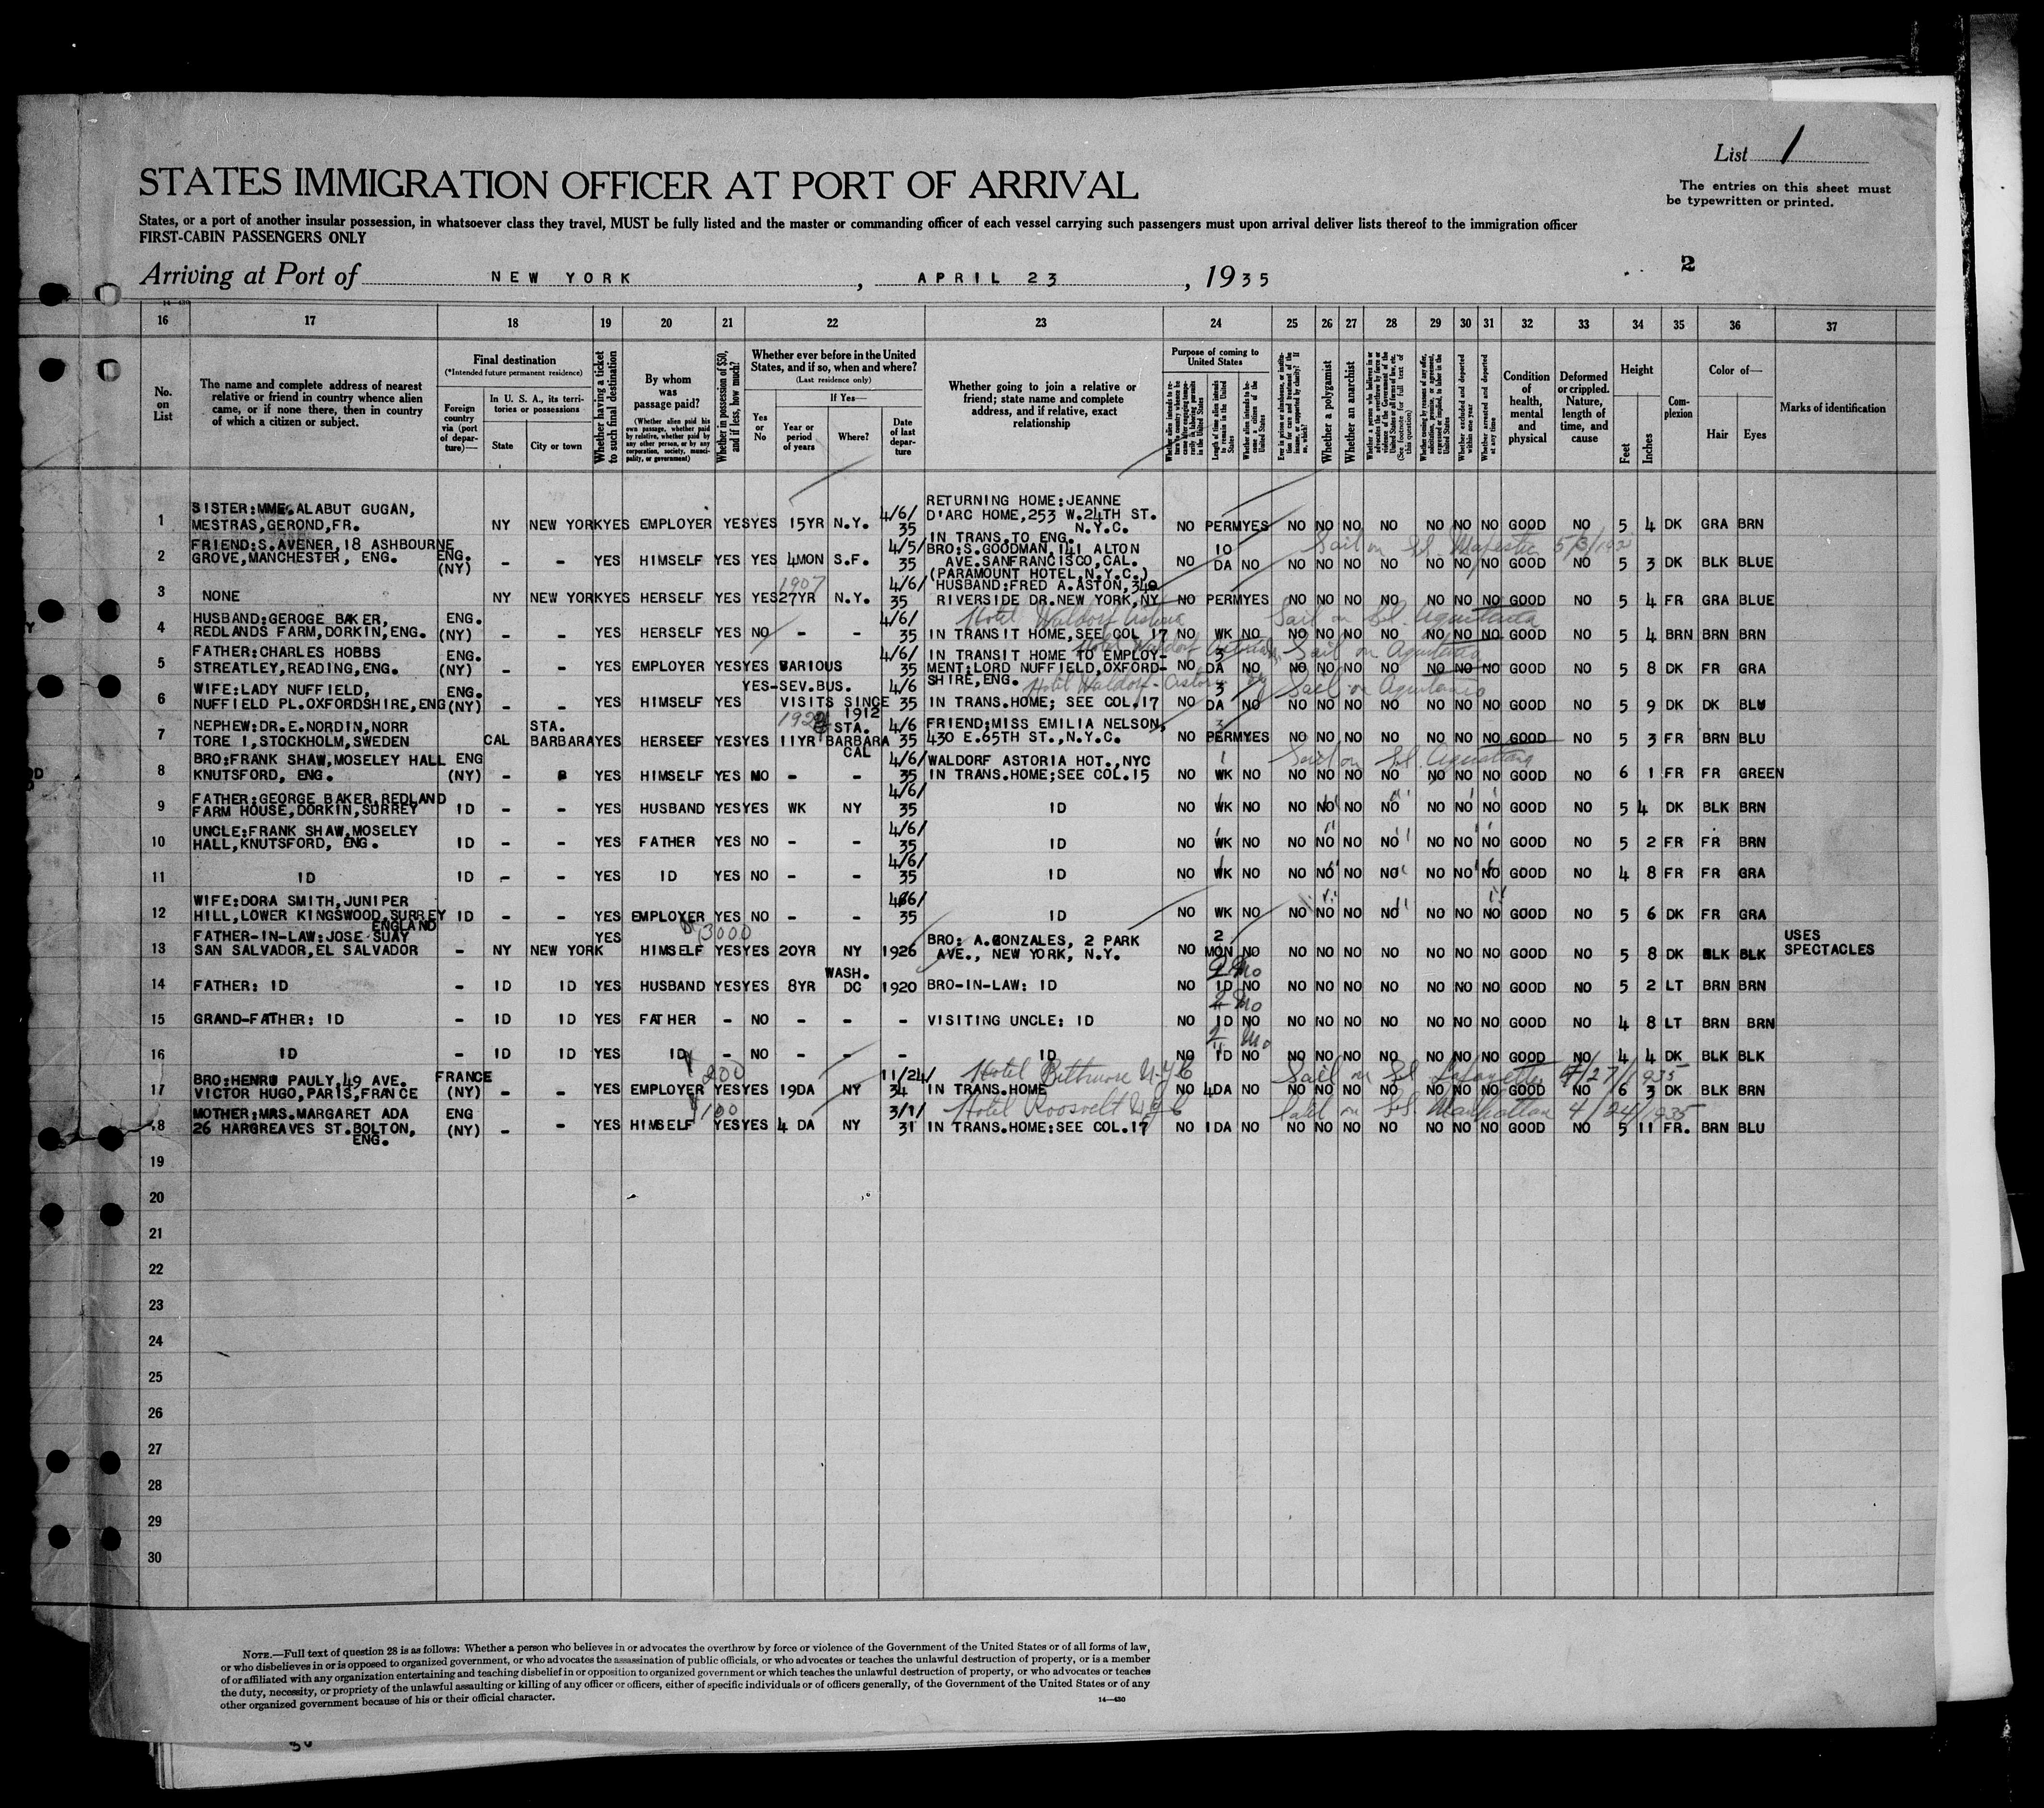 List 1
STATES IMMIGRATION OFFICER AT PORT OF ARRIVAL
The entries on this sheet must
be typewritten or printed.
States, or a port of another insular possession, in whatsoever class they travel, MUST be fully listed and the master or commanding officer of each vessel carrying such passengers must upon arrival deliver lists thereof to the immigration officer
FIRST-CABIN PASSENGERS ONLY
Arriving at Port of NEW YORK, APRIL 23, 1935
2
14-430
16 17 18 19 20 21 22 23 24 25 26 27 28 29 30 31 32 33 34 35 36 37
No. on List
The name and complete address of nearest relative or friend in country whence alien came, or if none there, then in country of which a citizen or subject.
Final destination
(*Intended future permanent residence)
Foreign country via (port of departure)—
In U. S. A., its territories or possessions
State
City or town
Whether having a ticket to such final destination
By whom was passage paid?
(Whether alien paid his own passage, whether paid by relative, whether paid by any other person, or by any corporation, society, municipality, or government)
Whether in possession of $50, and if less, how much?
Whether ever before in the United States, and if so, when and where?
(Last residence only)
Yes or No
If Yes—
Year or period of years
Where?
Date of last departure
Whether going to join a relative or friend; state name and complete address, and if relative, exact relationship
Purpose of coming to United States
Length of time alien intends to remain in the United States
Whether alien intends to become a citizen of the United States
Whether a polygamist
Whether an anarchist
(See footnote for full text of this question)
Whether excluded and deported within one year
Whether arrested and deported at any time
Condition of health, mental and physical
Deformed or crippled. Nature, length of time, and cause
Height
Feet
Inches
Complexion
Color of—
Hair
Eyes
Marks of identification
1 SISTER:MME.ALABUT GUGAN, MESTRAS,GEROND,FR. NY NEW YORK YES EMPLOYER YES YES 15YR N.Y. 4/6/35 RETURNING HOME:JEANNE D'ARC HOME,253 W.24TH ST. N.Y.C. NO PERM YES NO NO NO NO NO NO NO GOOD NO 5 4 DK GRA BRN
2 FRIEND:S.AVENER,18 ASHBOURNE GROVE,MANCHESTER, ENG. ENG. (NY) - - YES HIMSELF YES YES 4MON S.F. 4/5/35 IN TRANS.TO ENG. BRO:S.GOODMAN,141 ALTON AVE.SANFRANCISCO,CAL. (PARAMOUNT HOTEL,N.Y.C.) NO 10 DA NO NO NO NO NO NO NO NO GOOD NO 5 3 DK BLK BLUE
Sail on SS. Majestic
3 NONE NY NEW YORK YES HERSELF YES YES 1907 27YR N.Y. 4/6/35 HUSBAND:FRED A.ASTON,340 RIVERSIDE DR.NEW YORK,NY NO PERM YES NO NO NO NO NO NO NO GOOD NO 5 4 FR GRA BLUE
4 HUSBAND:GEROGE BAKER, REDLANDS FARM,DORKIN,ENG. ENG. (NY) - - YES HERSELF YES NO - - 4/6/35 IN TRANSIT HOME,SEE COL 17 NO WK NO NO NO NO NO NO NO NO GOOD NO 5 4 BRN BRN BRN
Hotel Waldorf Astoria Sail on SS. Aquitania
5 FATHER:CHARLES HOBBS STREATLEY,READING,ENG. ENG. (NY) - - YES EMPLOYER YES YES VARIOUS 4/6/35 IN TRANSIT HOME TO EMPLOY-MENT:LORD NUFFIELD,OXFORD-SHIRE,ENG. NO 3 DA NO NO NO NO NO NO NO NO GOOD NO 5 8 DK FR GRA
Hotel Waldorf Astoria Sail on Aquitania
6 WIFE:LADY NUFFIELD, NUFFIELD PL.OXFORDSHIRE,ENG ENG. (NY) - - YES HIMSELF YES YES-SEV.BUS. VISITS SINCE 1912 4/6 35 IN TRANS.HOME; SEE COL.17 NO 3 DA NO NO NO NO NO NO NO NO GOOD NO 5 9 DK DK BLU
Hotel Waldorf-Astoria Sail on Aquitania
7 NEPHEW:DR.E.NORDIN,NORR TORE 1,STOCKHOLM,SWEDEN CAL STA. BARBARA YES HERSELF YES YES 11YR STA. BARBARA CAL 4/6 35 FRIEND:MISS EMILIA NELSON, 430 E.65TH ST.,N.Y.C. NO PERM YES NO NO NO NO NO NO NO GOOD NO 5 3 FR BRN BLU
8 BRO:FRANK SHAW,MOSELEY HALL KNUTSFORD, ENG. ENG (NY) - - YES HIMSELF YES NO - - 4/6/35 WALDORF ASTORIA HOT.,NYC IN TRANS.HOME;SEE COL.15 NO 1 WK NO NO NO NO NO NO NO NO GOOD NO 6 1 FR FR GREEN
Sail on SS. Aquitania
9 FATHER:GEORGE BAKER,REDLAND FARM HOUSE,DORKIN,SURREY ID - - YES HUSBAND YES YES WK NY 4/6/35 ID NO WK NO NO NO NO NO NO NO NO GOOD NO 5 4 DK BLK BRN
10 UNCLE:FRANK SHAW,MOSELEY HALL,KNUTSFORD, ENG. ID - - YES FATHER YES NO - - 4/6/35 ID NO WK NO NO NO NO NO NO NO NO GOOD NO 5 2 FR FR BRN
11 ID ID - - YES ID YES NO - - 4/6/35 ID NO WK NO NO NO NO NO NO NO NO GOOD NO 4 8 FR FR GRA
12 WIFE:DORA SMITH,JUNIPER HILL,LOWER KINGSWOOD,SURREY ENGLAND ID - - YES EMPLOYER YES NO - - 4/6/35 ID NO WK NO NO NO NO NO NO NO NO GOOD NO 5 6 DK FR GRA
13 FATHER-IN-LAW:JOSE SUAY SAN SALVADOR,EL SALVADOR - NY NEW YORK YES HIMSELF 3000 YES YES 20YR NY 1926 BRO: A.GONZALES, 2 PARK AVE., NEW YORK, N.Y. NO 2 MON NO NO NO NO NO NO NO NO GOOD NO 5 8 DK BLK BLK USES SPECTACLES
14 FATHER: ID - ID ID YES HUSBAND YES YES 8YR WASH. DC 1920 BRO-IN-LAW: ID NO 2 Mo ID NO NO NO NO NO NO NO NO GOOD NO 5 2 LT BRN BRN
15 GRAND-FATHER: ID - ID ID YES FATHER - NO - - - VISITING UNCLE: ID NO 2 Mo ID NO NO NO NO NO NO NO NO GOOD NO 4 8 LT BRN BRN
16 ID - ID ID YES ID - NO - - - ID NO 2 Mo ID NO NO NO NO NO NO NO NO GOOD NO 4 4 DK BLK BLK
17 BRO:HENRU PAULY,49 AVE. VICTOR HUGO,PARIS,FRANCE FRANCE (NY) - - YES EMPLOYER 200 YES YES 19DA NY 11/24/34 IN TRANS.HOME NO 4DA NO NO NO NO NO NO NO NO GOOD NO 6 3 DK BLK BRN
Hotel Biltmore N.Y.C Sail on SS Lafayette 4/27/1935
18 MOTHER:MRS.MARGARET ADA 26 HARGREAVES ST.BOLTON, ENG. ENG (NY) - - YES HIMSELF 100 YES YES 4 DA NY 3/1/31 IN TRANS.HOME;SEE COL.17 NO 1DA NO NO NO NO NO NO NO NO GOOD NO 5 11 FR. BRN BLU
Hotel Roosevelt N.Y.C Sail on SS. Manhattan 4/24/1935
19
20
21
22
23
24
25
26
27
28
29
30
NOTE.—Full text of question 28 is as follows: Whether a person who believes in or advocates the overthrow by force or violence of the Government of the United States or of all forms of law,
or who disbelieves in or is opposed to organized government, or who advocates the assassination of public officials, or who advocates or teaches the unlawful destruction of property, or is a member
of or affiliated with any organization entertaining and teaching disbelief in or opposition to organized government or which teaches the unlawful destruction of property, or who advocates or teaches
the duty, necessity, or propriety of the unlawful assaulting or killing of any officer or officers, either of specific individuals or of officers generally, of the Government of the United States or of any
other organized government because of his or their official character.
14—430